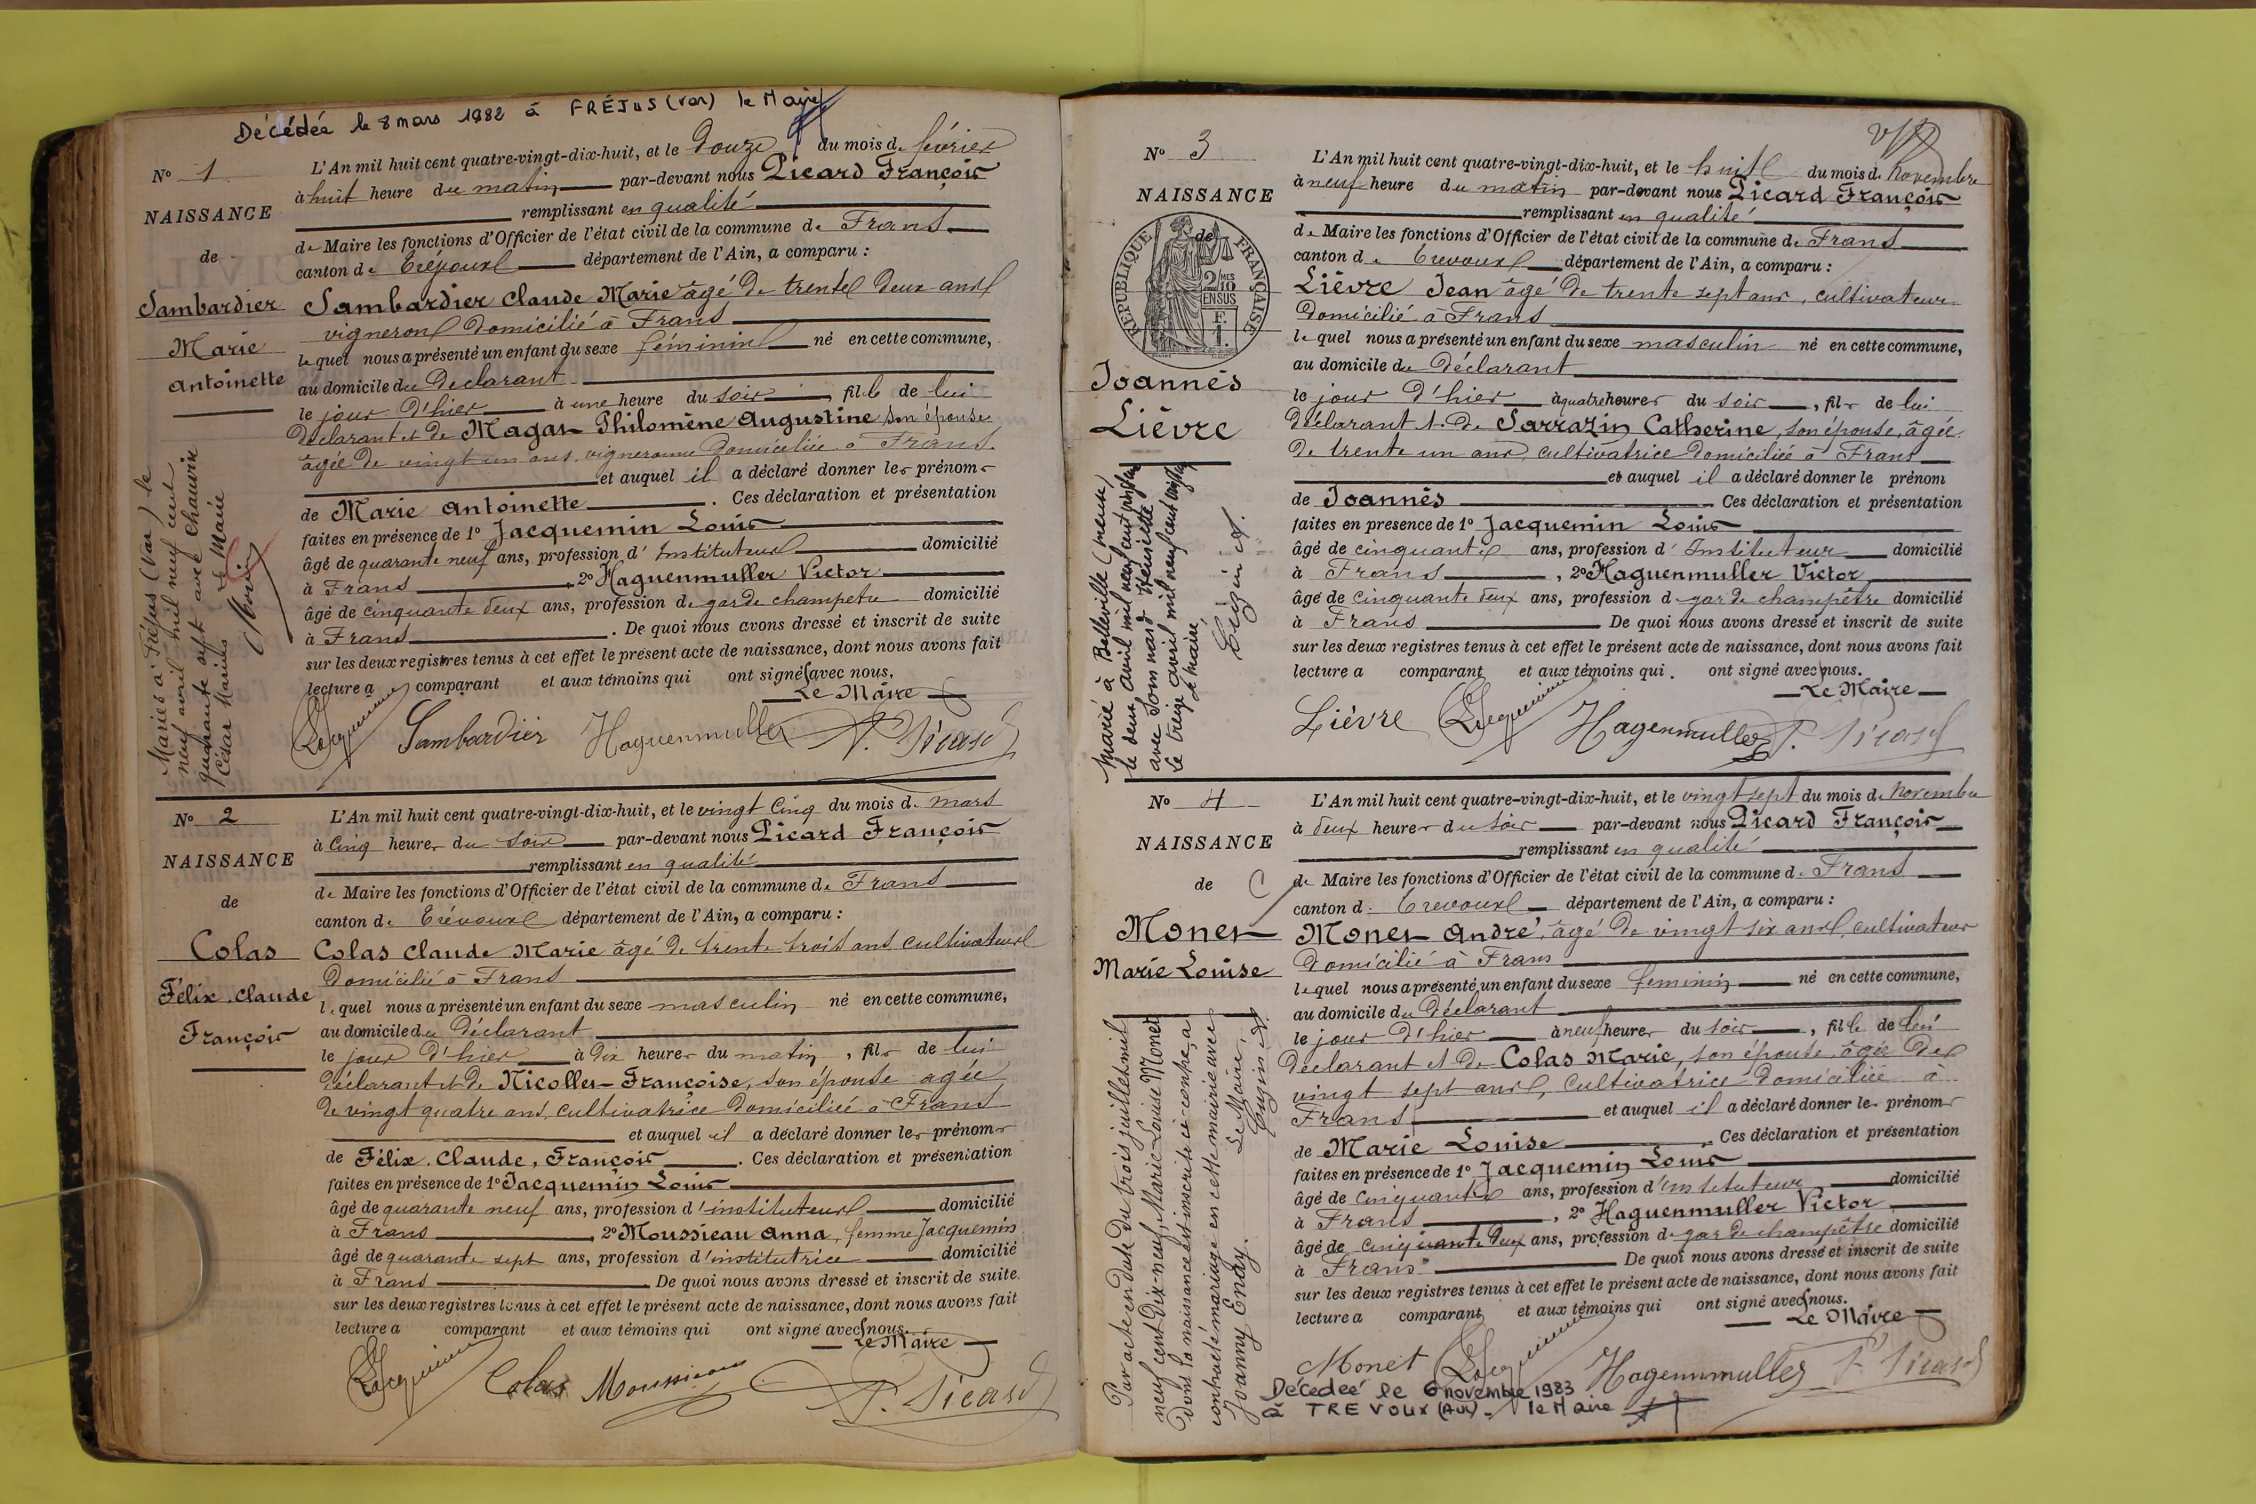 Décédée le 8 mars 1982 à FRÉJUS (Var) le Maire
No 1
NAISSANCE
de
Sambardier
Marie
Antoinette
Mariés à Fréjus (Var) le
neuf avril mil neuf cent
quarante sept avec Chauvin
César Marius le Maire
L'An mil huit cent quatre-vingt-dix-huit, et le Douze du mois de février
à huit heure du matin par-devant nous Picard François
remplissant en qualité
de Maire les fonctions d'Officier de l'état civil de la commune de Frans
canton de Trévoux département de l'Ain, a comparu :
Sambardier Claude Marie âgé de trente deux ans
vigneron domicilié à Frans
lequel nous a présenté un enfant du sexe féminin né en cette commune,
au domicile du Déclarant
le jour d'hier à une heure du soir, fille de lui
déclarant et de Magat Philomène Augustine son épouse
âgée de vingt un ans vigneronne domiciliée à Frans
et auquel il a déclaré donner les prénoms
de Marie Antoinette. Ces déclaration et présentation
faites en présence de 1o Jacquemin Louis
âgé de quarante neuf ans, profession d'Instituteur domicilié
à Frans, 2o Haguenmuller Victor
âgé de cinquante deux ans, profession de garde champetre domicilié
à Frans. De quoi nous avons dressé et inscrit de suite
sur les deux registres tenus à cet effet le présent acte de naissance, dont nous avons fait
lecture a comparant et aux témoins qui ont signé avec nous.
Le Maire
Jacquemin Sambardier Haguenmuller F. Picard
No 2
NAISSANCE
de
Colas
Félix Claude
François
L'An mil huit cent quatre-vingt-dix-huit, et le vingt cinq du mois de mars
à cinq heures du soir par-devant nous Picard François
remplissant en qualité
de Maire les fonctions d'Officier de l'état civil de la commune de Frans
canton de Trévoux département de l'Ain, a comparu :
Colas Claude Marie âgé de trente trois ans cultivateur
domicilié à Frans
lequel nous a présenté un enfant du sexe masculin né en cette commune,
au domicile du Déclarant
le jour d'hier à dix heures du matin, fils de lui
déclarant et de Nicollet Françoise, son épouse agée
de vingt quatre ans, cultivatrice domiciliée à Frans
et auquel il a déclaré donner les prénoms
de Félix, Claude, François. Ces déclaration et présentation
faites en présence de 1o Jacquemin Louis
âgé de quarante neuf ans, profession d'instituteur domicilié
à Frans, 2o Moussieau Anna, femme Jacquemin
âgé de quarante sept ans, profession d'institutrice domicilié
à Frans De quoi nous avons dressé et inscrit de suite
sur les deux registres tenus à cet effet le présent acte de naissance, dont nous avons fait
lecture a comparant et aux témoins qui ont signé avec nous.
Le Maire
Jacquemin Colas Moussieau F. Picard
No 3
NAISSANCE
de
RÉPUBLIQUE FRANÇAISE
2/10 MES
EN SUS
F.
1.
Joannès
Lièvre
marié à Belleville
le deux avril mil neuf cent
avec
le treize avril mil neuf cent
le maire,
L'An mil huit cent quatre-vingt-dix-huit, et le huit du mois de Novembre
à neuf heure du matin par-devant nous Picard François
remplissant en qualité
de Maire les fonctions d'Officier de l'état civil de la commune de Frans
canton de Trevoux département de l'Ain, a comparu :
Lièvre Jean âgé de trente sept ans, cultivateur
domicilié à Frans
lequel nous a présenté un enfant du sexe masculin né en cette commune,
au domicile du Déclarant
le jour d'hier à quatre heures du soir, fils de lui
déclarant et de Sarrazin Catherine, son épouse, âgée
de trente un ans cultivatrice domiciliée à Frans
et auquel il a déclaré donner le prénom
de Joannès Ces déclaration et présentation
faites en présence de 1o Jacquemin Louis
âgé de cinquante ans, profession d'Instituteur domicilié
à Frans, 2o Haguenmuller Victor
âgé de cinquante deux ans, profession de garde champêtre domicilié
à Frans De quoi nous avons dressé et inscrit de suite
sur les deux registres tenus à cet effet le présent acte de naissance, dont nous avons fait
lecture a comparant et aux témoins qui ont signé avec nous.
Le Maire
Lièvre Jacquemin Hagenmuller F. Picard
No 4
NAISSANCE
de
Monet
Marie Louise
Par acte en date du trois juillet mil
neuf cent dix-neuf, Marie-Louise Monet
dont la naissance est inscrite ci-contre, a
contracté mariage en cette mairie avec
Joanny Enay. Le Maire,
L'An mil huit cent quatre-vingt-dix-huit, et le vingt sept du mois de Novembre
à deux heures du soir par-devant nous Picard François
remplissant en qualité
de Maire les fonctions d'Officier de l'état civil de la commune de Frans
canton de Trevoux département de l'Ain, a comparu :
Monet André, âgé de vingt six ans, cultivateur
domicilié à Frans
lequel nous a présenté un enfant du sexe feminin né en cette commune,
au domicile du Déclarant
le jour d'hier à neuf heures du soir, fille de lui
déclarant et de Colas Marie, son épouse, âgée de
vingt sept ans, cultivatrice domiciliée à
Frans et auquel il a déclaré donner les prénoms
de Marie Louise. Ces déclaration et présentation
faites en présence de 1o Jacquemin Louis
âgé de cinquante ans, profession d'instituteur domicilié
à Frans, 2o Haguenmuller Victor
âgé de cinquante deux ans, profession de garde champêtre domicilié
à Frans De quoi nous avons dressé et inscrit de suite
sur les deux registres tenus à cet effet le présent acte de naissance, dont nous avons fait
lecture a comparant et aux témoins qui ont signé avec nous.
Le Maire
Monet Jacquemin Hagenmuller F. Picard
Décedeé le 6 novembre 1983
à TREVOUX (Ain). le Maire